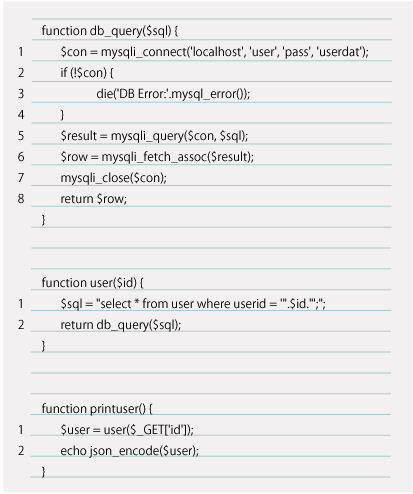 function db_query($sql) {
1 $con = mysqli_connect('localhost', 'user', 'pass', 'userdat');
2 if (!$con) {
3 die('DB Error:'.mysql_error());
4 }
5 $result = mysqli_query($con, $sql);
6 $row = mysqli_fetch_assoc($result);
7 mysqli_close($con);
8 return $row;
}
function user($id) {
1 $sql = "select * from user where userid = '".$id."';";
2 return db_query($sql);
}
function printuser() {
1 $user = user($_GET['id']);
2 echo json_encode($user);
}